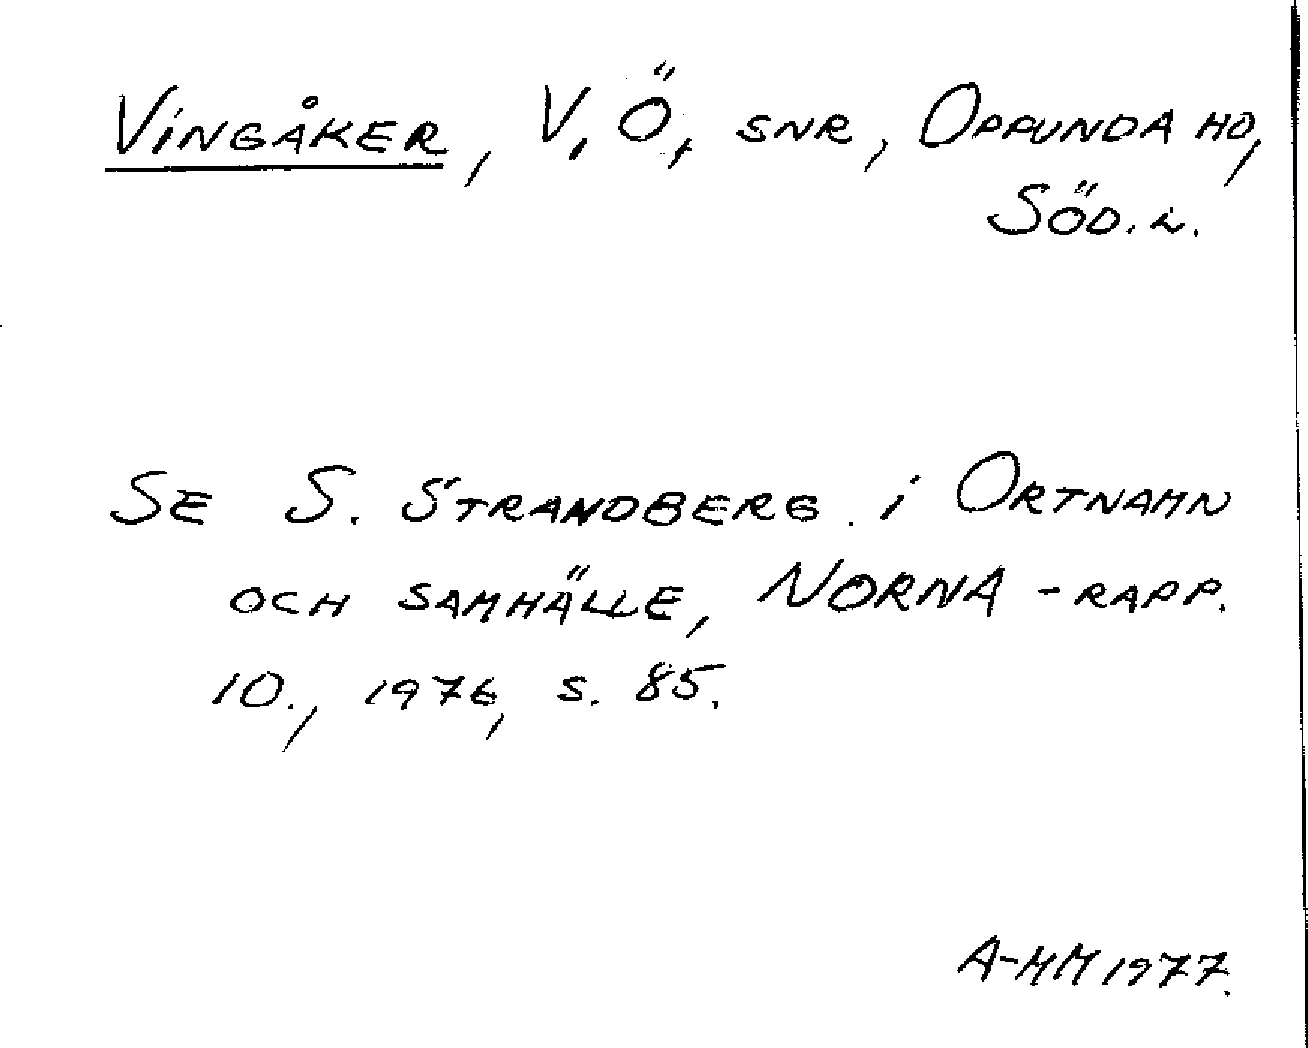 VINGÅKER, V, Ö, SNR, OPPUNDA HD,
SÖD. L.
SE S. STRANDBERG i ORTNAMN
OCH SAMHÄLLE, NORNA-RAPP.
10., 1976, S. 85.
A-MM 1977.